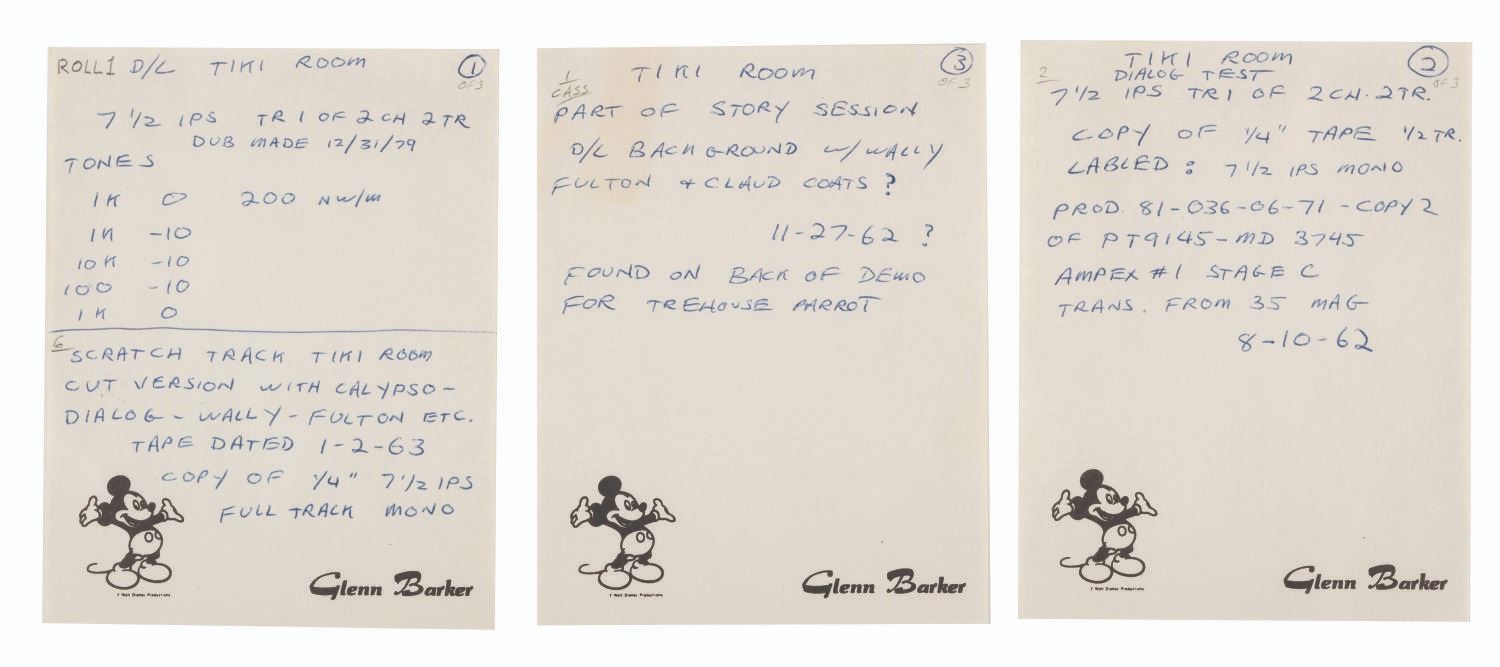 ROLL 1 D/L TIKI ROOM 1
OF 3
7 1/2 IPS TR 1 OF 2 CH 2 TR
DUB MADE 12/31/79
TONES
1K 0 200 NW/M
1K -10
10K -10
100 -10
1K 0
6
SCRATCH TRACK TIKI ROOM
CUT VERSION WITH CALYPSO-
DIALOG - WALLY - FULTON ETC.
TAPE DATED 1-2-63
COPY OF 1/4" 7 1/2 IPS
FULL TRACK MONO
Glenn Barker
1
CASS.
TIKI ROOM 3
OF 3
PART OF STORY SESSION
D/L BACKGROUND W/ WALLY
FULTON + CLAUD COATS ?
11-27-62 ?
FOUND ON BACK OF DEMO
FOR TREHOUSE PARROT
© Walt Disney Productions
Glenn Barker
2
TIKI ROOM 2
DIALOG TEST OF 3
7 1/2 IPS TR 1 OF 2 CH. 2 TR.
COPY OF 1/4" TAPE 1/2 TR.
LABLED : 7 1/2 IPS MONO
PROD. 81-036-06-71 - COPY 2
OF PT9145-MD 3745
AMPEX #1 STAGE C
TRANS. FROM 35 MAG
8-10-62
Glenn Barker